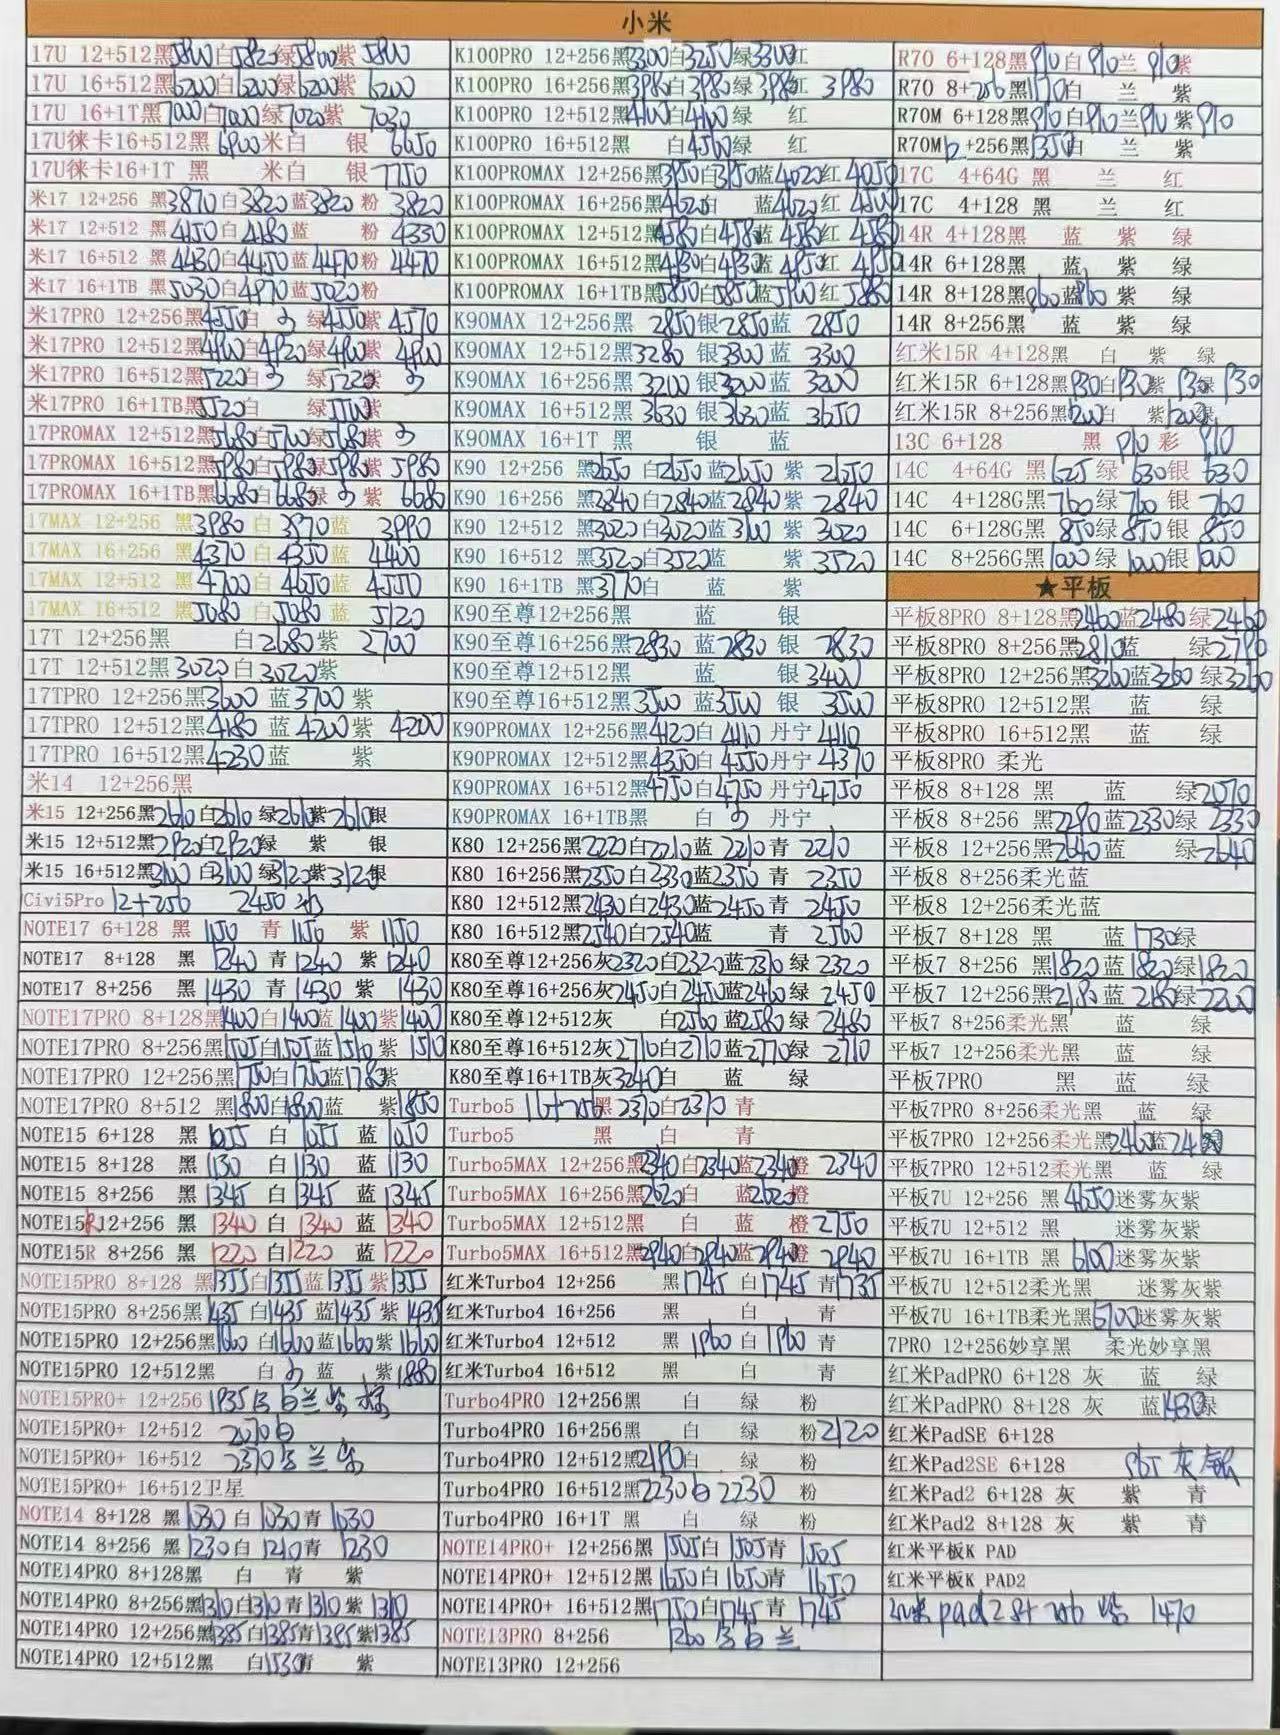 小米
17U 12+512黑5800白5820绿5800紫 5800
17U 16+512黑6200白6200绿6200紫 6200
17U 16+1T黑7000白7000绿7020紫 7030
17U徕卡16+512黑6900米白 银 6650
17U徕卡16+1T 黑 米白 银 7750
米17 12+256 黑3870白3820蓝3820 粉 3820
米17 12+512 黑4150白4180蓝 粉 4330
米17 16+512 黑4430白4450蓝4470粉 4470
米17 16+1TB 黑5030白4970蓝5020粉
米17PRO 12+256黑4550白 绿4550紫 4570
米17PRO 12+512黑4900白4920绿4900紫 4900
米17PRO 16+512黑5220白 绿5220紫
米17PRO 16+1TB黑5520白 绿5500紫
17PROMAX 12+512黑5680白5700绿5680紫
17PROMAX 16+512黑5980白5980绿5980紫 5980
17PROMAX 16+1TB黑6680白6680绿 紫 6680
17MAX 12+256 黑3980 白 3970蓝 3990
17MAX 16+256 黑4370 白 4350蓝 4400
17MAX 12+512 黑4700 白 4650蓝 4550
17MAX 16+512 黑5080 白 5080 蓝 5120
17T 12+256黑 白2680紫 2700
17T 12+512黑3020 白3020紫
17TPRO 12+256黑3600 蓝3700 紫
17TPRO 12+512黑4180 蓝 4200 紫 4200
17TPRO 16+512黑4230蓝 紫
米14 12+256黑
米15 12+256黑2610白2610 绿2610紫2610银
米15 12+512黑2920白2920绿 紫 银
米15 16+512黑3100白3100 绿3120紫3120银
Civi5Pro 12+256 2450
NOTE17 6+128 黑 1150 青 1150 紫 1150
NOTE17 8+128 黑 1240 青1240 紫1240
NOTE17 8+256 黑 1430 青 1430 紫 1430
NOTE17PRO 8+128黑1400白1400蓝 1400紫1400
NOTE17PRO 8+256黑1505白1505蓝1510 紫 1510
NOTE17PRO 12+256黑1750白1750蓝1780紫
NOTE17PRO 8+512 黑1800白1800蓝 紫1850
NOTE15 6+128 黑 1055 白 1055 蓝 1050
NOTE15 8+128 黑 1130 白 1130 蓝 1130
NOTE15 8+256 黑 1345 白 1345 蓝 1345
NOTE15R12+256 黑 1340 白 1340 蓝 1340
NOTE15R 8+256 黑 1220 白1220 蓝1220
NOTE15PRO 8+128 黑1355白1355蓝1355紫1355
NOTE15PRO 8+256黑1435 白1435 蓝1435 紫1435
NOTE15PRO 12+256黑1660 白1600蓝1660紫1660
NOTE15PRO 12+512黑 白 蓝 紫1880
NOTE15PRO+ 12+256 1935 白兰紫
NOTE15PRO+ 12+512 2070白
NOTE15PRO+ 16+512 2370 兰
NOTE15PRO+ 16+512卫星
NOTE14 8+128 黑1030 白1030青 1030
NOTE14 8+256 黑1230白1210青 1230
NOTE14PRO 8+128黑 白 青 紫
NOTE14PRO 8+256黑1310白1310青1310紫 1310
NOTE14PRO 12+256黑1385白1385青1385紫1385
NOTE14PRO 12+512黑 白1530青 紫
K100PRO 12+256黑3300白3250绿3300红
K100PRO 16+256黑3980白3980绿3980红 3980
K100PRO 12+512黑4100白4100绿 红
K100PRO 16+512黑 白4500绿 红
K100PROMAX 12+256黑3950白3950蓝4020红 4050
K100PROMAX 16+256黑4620白 蓝4620红 4500
K100PROMAX 12+512黑4580白4580蓝 4580红 4580
K100PROMAX 16+512黑4930白4930蓝4950红 4950
K100PROMAX 16+1TB黑5850白5850蓝5900红 5880
K90MAX 12+256黑 2850银2850蓝 2850
K90MAX 12+512黑3280 银3300 蓝 3300
K90MAX 16+256黑 3200银3200蓝 3200
K90MAX 16+512黑 3630 银3630蓝 3650
K90MAX 16+1T 黑 银 蓝
K90 12+256 黑2650 白2650蓝2650 紫 2650
K90 16+256 黑2840白2840蓝2840紫 2840
K90 12+512 黑3020白3020蓝3100 紫 3020
K90 16+512 黑3520白3520蓝 紫 3520
K90 16+1TB 黑3770白 蓝 紫
K90至尊12+256黑 蓝 银
K90至尊16+256黑2830 蓝2830 银 2830
K90至尊12+512黑 蓝 银3400
K90至尊16+512黑3500 蓝3500 银 3500
K90PROMAX 12+256黑4120白 4110 丹宁 4110
K90PROMAX 12+512黑4350白 4550丹宁4370
K90PROMAX 16+512黑4750白4750 丹宁4750
K90PROMAX 16+1TB黑 白 丹宁
K80 12+256黑2220白2210蓝 2210青 2210
K80 16+256 黑2350白2330蓝2350 青 2350
K80 12+512 黑2430白2430蓝2450 青 2450
K80 16+512 黑2540白2540蓝 青 2560
K80至尊12+256灰2320白2320蓝2310 绿 2320
K80至尊16+256灰2450白2450蓝2460 绿 2450
K80至尊12+512灰 白2560 蓝2580绿 2480
K80至尊16+512灰2710白2710蓝2770绿 2710
K80至尊16+1TB灰3240白 蓝 绿
Turbo5 16+256黑 2370白2370 青
Turbo5 黑 白 青
Turbo5MAX 12+256黑2340白2340蓝2340橙 2340
Turbo5MAX 16+256黑2620白 蓝2620橙
Turbo5MAX 12+512黑 白 蓝 橙2750
Turbo5MAX 16+512黑2940白2840蓝2940橙 2940
红米Turbo4 12+256 黑1745 白1745 青1735
红米Turbo4 16+256 黑 白 青
红米Turbo4 12+512 黑 1960 白1960 青
红米Turbo4 16+512 黑 白 青
Turbo4PRO 12+256黑 白 绿 粉
Turbo4PRO 16+256黑 白 绿 粉2120
Turbo4PRO 12+512黑2190白 绿 粉
Turbo4PRO 16+512黑2230白 2230 粉
Turbo4PRO 16+1T 黑 白 绿 粉
NOTE14PRO+ 12+256黑 1505白 1505青 1505
NOTE14PRO+ 12+512黑1650白 1650青 1650
NOTE14PRO+ 16+512黑1750白1745青 1745
NOTE13PRO 8+256 1260 白兰
NOTE13PRO 12+256
R70 6+128黑910白910兰 910紫
R70 8+256黑1170白 兰 紫
R70M 6+128黑910白910兰910紫910
R70M12+256黑1350白 兰 紫
17C 4+64G 黑 兰 红
17C 4+128 黑 兰 红
14R 4+128黑 蓝 紫 绿
14R 6+128黑 蓝 紫 绿
14R 8+128黑960蓝960 紫 绿
14R 8+256黑 蓝 紫 绿
红米15R 4+128黑 白 紫 绿
红米15R 6+128黑930白930紫 930绿 930
红米15R 8+256黑1200白 紫1200绿
13C 6+128 黑 910 彩 910
14C 4+64G 黑 625 绿 630银 630
14C 4+128G黑760绿760 银 760
14C 6+128G黑 850绿850 银 850
14C 8+256G黑1000绿 1000银 1000
★平板
平板8PRO 8+128黑2460蓝2480绿2460
平板8PRO 8+256黑2810蓝 绿2790
平板8PRO 12+256黑3260蓝3260 绿3260
平板8PRO 12+512黑 蓝 绿
平板8PRO 16+512黑 蓝 绿
平板8PRO 柔光
平板8 8+128 黑 蓝 绿2070
平板8 8+256 黑2290蓝2330绿 2330
平板8 12+256黑2640蓝 绿2640
平板8 8+256柔光蓝
平板8 12+256柔光蓝
平板7 8+128 黑 蓝1730绿
平板7 8+256 黑1820蓝 1820绿1820
平板7 12+256黑2180蓝 2180绿2200
平板7 8+256柔光黑 蓝 绿
平板7 12+256柔光黑 蓝 绿
平板7PRO 黑 蓝 绿
平板7PRO 8+256柔光黑 蓝 绿
平板7PRO 12+256柔光黑2460蓝2460绿
平板7PRO 12+512柔光黑 蓝 绿
平板7U 12+256 黑 4650迷雾灰紫
平板7U 12+512 黑 迷雾灰紫
平板7U 16+1TB 黑 6100迷雾灰紫
平板7U 12+512柔光黑 迷雾灰紫
平板7U 16+1TB柔光黑5700迷雾灰紫
7PRO 12+256妙享黑 柔光妙享黑
红米PadPRO 6+128 灰 蓝 绿
红米PadPRO 8+128 灰 蓝1430绿
红米PadSE 6+128
红米Pad2SE 6+128 965 灰 银
红米Pad2 6+128 灰 紫 青
红米Pad2 8+128 灰 紫 青
红米平板K PAD
红米平板K PAD2
红米pad2 8+256 紫 1470